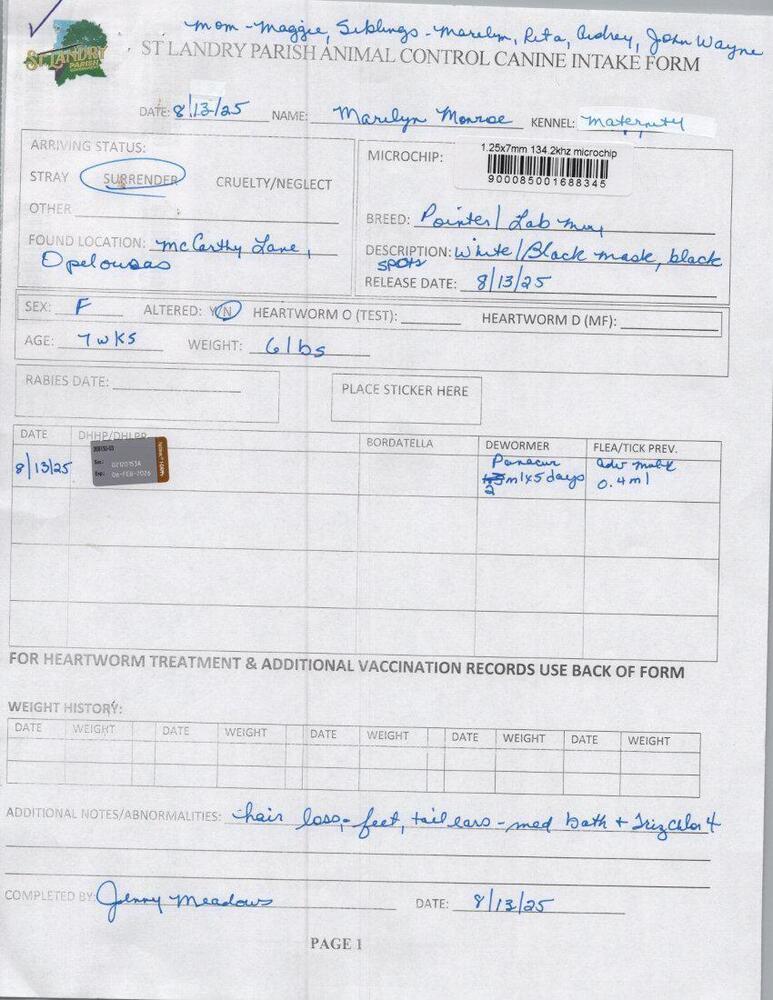 mom - Maggie, Siblings - Marelyn, Rita, Audrey, John Wayne
ST LANDRY PARISH
ST LANDRY PARISH ANIMAL CONTROL CANINE INTAKE FORM
DATE: 8/13/25 NAME: Marilyn Monroe KENNEL: maternity
ARRIVING STATUS:
STRAY SURRENDER CRUELTY/NEGLECT
OTHER
FOUND LOCATION: McCarthy Lane,
Opelousas
MICROCHIP: 1.25x7mm 134.2khz microchip
900085001688345
BREED: Pointer/ Lab mix
DESCRIPTION: White/Black mask, black
spots
RELEASE DATE: 8/13/25
SEX: F ALTERED: Y/N HEARTWORM O (TEST): HEARTWORM D (MF):
AGE: 7wks WEIGHT: 6lbs
RABIES DATE:
PLACE STICKER HERE
DATE DHHP/DHLPP BORDATELLA DEWORMER FLEA/TICK PREV.
8/13/25 Panacur adv multi
2 mlx5 days 0.4ml
06-FEB-2026
FOR HEARTWORM TREATMENT & ADDITIONAL VACCINATION RECORDS USE BACK OF FORM
WEIGHT HISTORY:
DATE WEIGHT DATE WEIGHT DATE WEIGHT DATE WEIGHT DATE WEIGHT
ADDITIONAL NOTES/ABNORMALITIES: hair loss - feet, tail ears - med bath + Trizchlor 4
COMPLETED BY: Jenny Meadows DATE: 8/13/25
PAGE 1